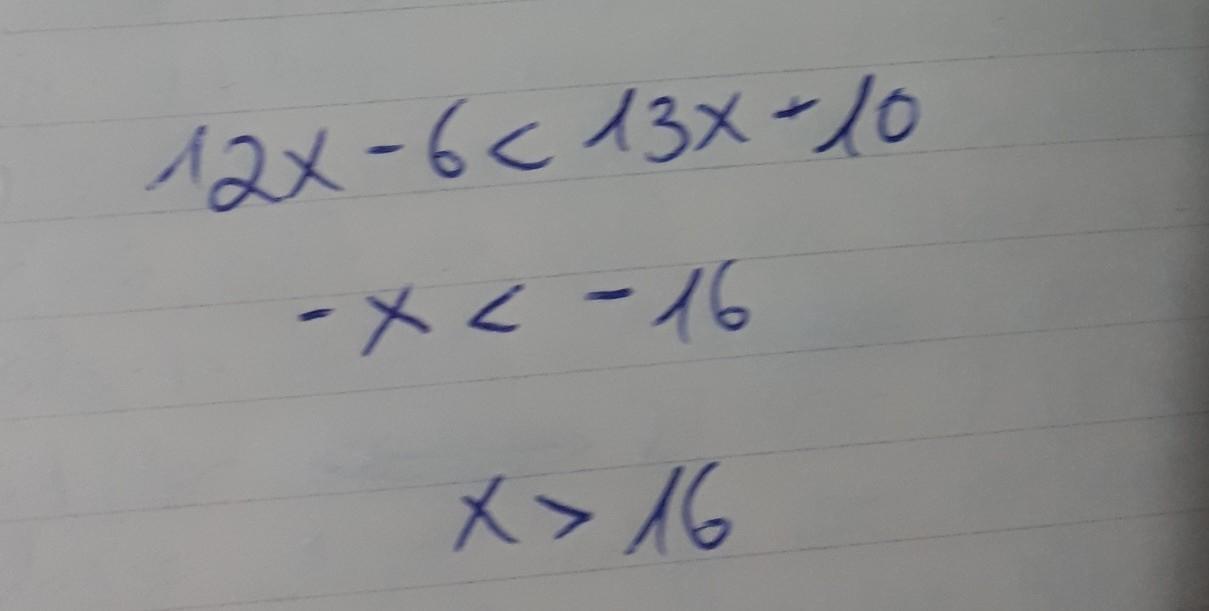 12x - 6 < 13x - 10
- x < - 16
x > 16